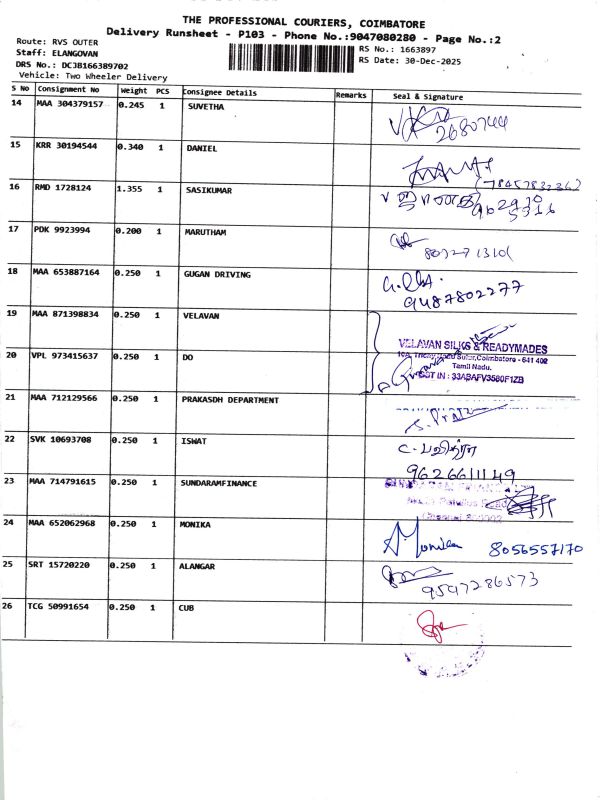 THE PROFESSIONAL COURIERS, COIMBATORE
Delivery Runsheet - P103 - Phone No.:9047080280 - Page No.:2
Route: RVS OUTER
RS No.: 1663897
Staff: ELANGOVAN
RS Date: 30-Dec-2025
DRS No.: DCJB166389702
Vehicle: Two Wheeler Delivery
S No Consignment No Weight PCS Consignee Details Remarks Seal & Signature
14 MAA 304379157 0.245 1 SUVETHA 2680744
15 KRR 30194544 0.340 1 DANIEL
16 RMD 1728124 1.355 1 SASIKUMAR
17 PDK 9923994 0.200 1 MARUTHAM
18 MAA 653887164 0.250 1 GUGAN DRIVING
9487802277
19 MAA 871398834 0.250 1 VELAVAN
VELAVAN SILKS & READYMADES
Sulur, Coimbatore - 641 402
Tamil Nadu.
20 VPL 973415637 0.250 1 DO
GST IN : 33ABAFV3580F1ZB
21 MAA 712129566 0.250 1 PRAKASDH DEPARTMENT
22 SVK 10693708 0.250 1 ISWAT
9626611149
23 MAA 714791615 0.250 1 SUNDARAMFINANCE
24 MAA 652062968 0.250 1 MONIKA A. Monika 8056557170
25 SRT 15720220 0.250 1 ALANGAR
9597286573
26 TCG 50991654 0.250 1 CUB